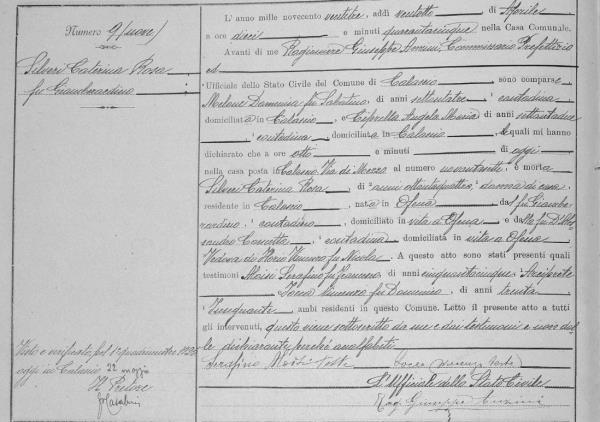 Numero 9 (nove)
Silveri Caterina Rosa
fu Giambernardino
Visto e verificato pel 1° quadrimestre
oggi in Calascio 22 maggio
Il Pretore
L'anno mille novecento ventitre, addì ventotto di Aprile
a ore dieci e minuti quarantacinque nella Casa Comunale.
Avanti di me Ragioniere Giuseppe Commissario Prefettizio
ed
Ufficiale dello Stato Civile del Comune di Calascio sono comparse
Domenica fu Sabatino di anni settantatre, contadina
domiciliata in Calascio, e Ceprella Angela Maria di anni
, contadina, domiciliata in Calascio, le quali mi hanno
dichiarato che a ore otto e minuti di oggi
nella casa posta in Calascio Via di Mezzo al numero è morta
Silveri Caterina Rosa di anni ottantaquattro, donna di casa
residente in Calascio, nata in Ofena dal fu Giamber
nardino, contadino, domiciliato in vita a Ofena e dalla fu
Concetta, contadina domiciliata in vita a Ofena
Vedova di fu Nicola. A questo atto sono stati presenti quali
testimoni Serafino fu Francesco di anni cinquantacinque, Arciprete
Vincenzo fu Domenico, di anni trenta
ambi residenti in questo Comune. Letto il presente atto a tutti
gli intervenuti, questo viene sottoscritto da me e dai testimoni e non dal
le dichiaranti perché analfabete
Serafino teste teste
L'Ufficiale dello Stato Civile
Rag. Giuseppe